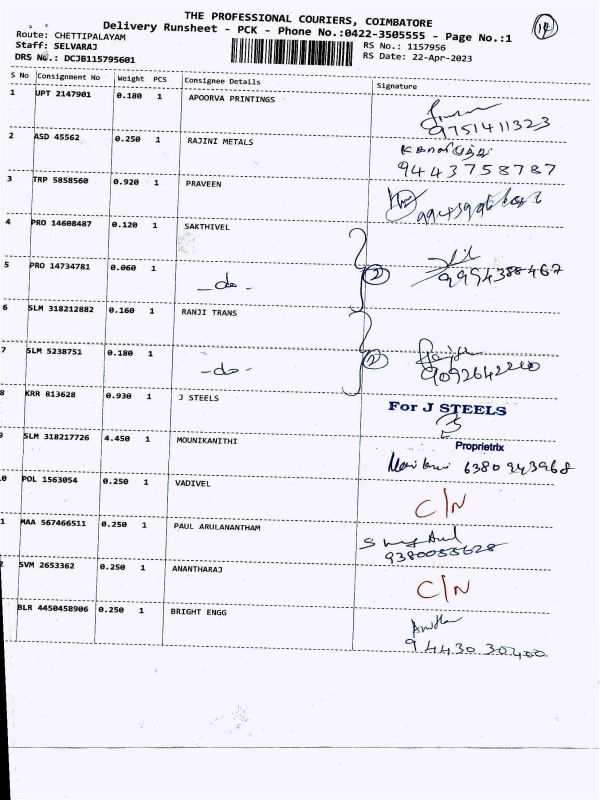 THE PROFESSIONAL COURIERS, COIMBATORE
Delivery Runsheet - PCK - Phone No.:0422-3505555 - Page No.:1
14
Route: CHETTIPALAYAM
Staff: SELVARAJ
RS No.: 1157956
DRS No.: DCJB115795601
RS Date: 22-Apr-2023
S No Consignment No Weight PCS Consignee Details Signature
1 UPT 2147901 0.180 1 APOORVA PRINTINGS
9751411323
2 ASD 45562 0.250 1 RAJINI METALS
9443758787
3 TRP 5858560 0.920 1 PRAVEEN
4 PRO 14608487 0.120 1 SAKTHIVEL
5 PRO 14734781 0.060 1 -do- 2 9994388467
6 SLM 318212882 0.160 1 RANJI TRANS
7 SLM 5238751 0.180 1 -do- 2
9092642240
8 KRR 813628 0.930 1 J STEELS For J STEELS
9 SLM 318217726 4.450 1 MOUNIKANITHI Proprietrix
6380943968
0 POL 1563054 0.250 1 VADIVEL C/N
1 MAA 567466511 0.250 1 PAUL ARULANANTHAM
9380055628
2 SVM 2653362 0.250 1 ANANTHARAJ C/N
BLR 4450458906 0.250 1 BRIGHT ENGG
9443030400